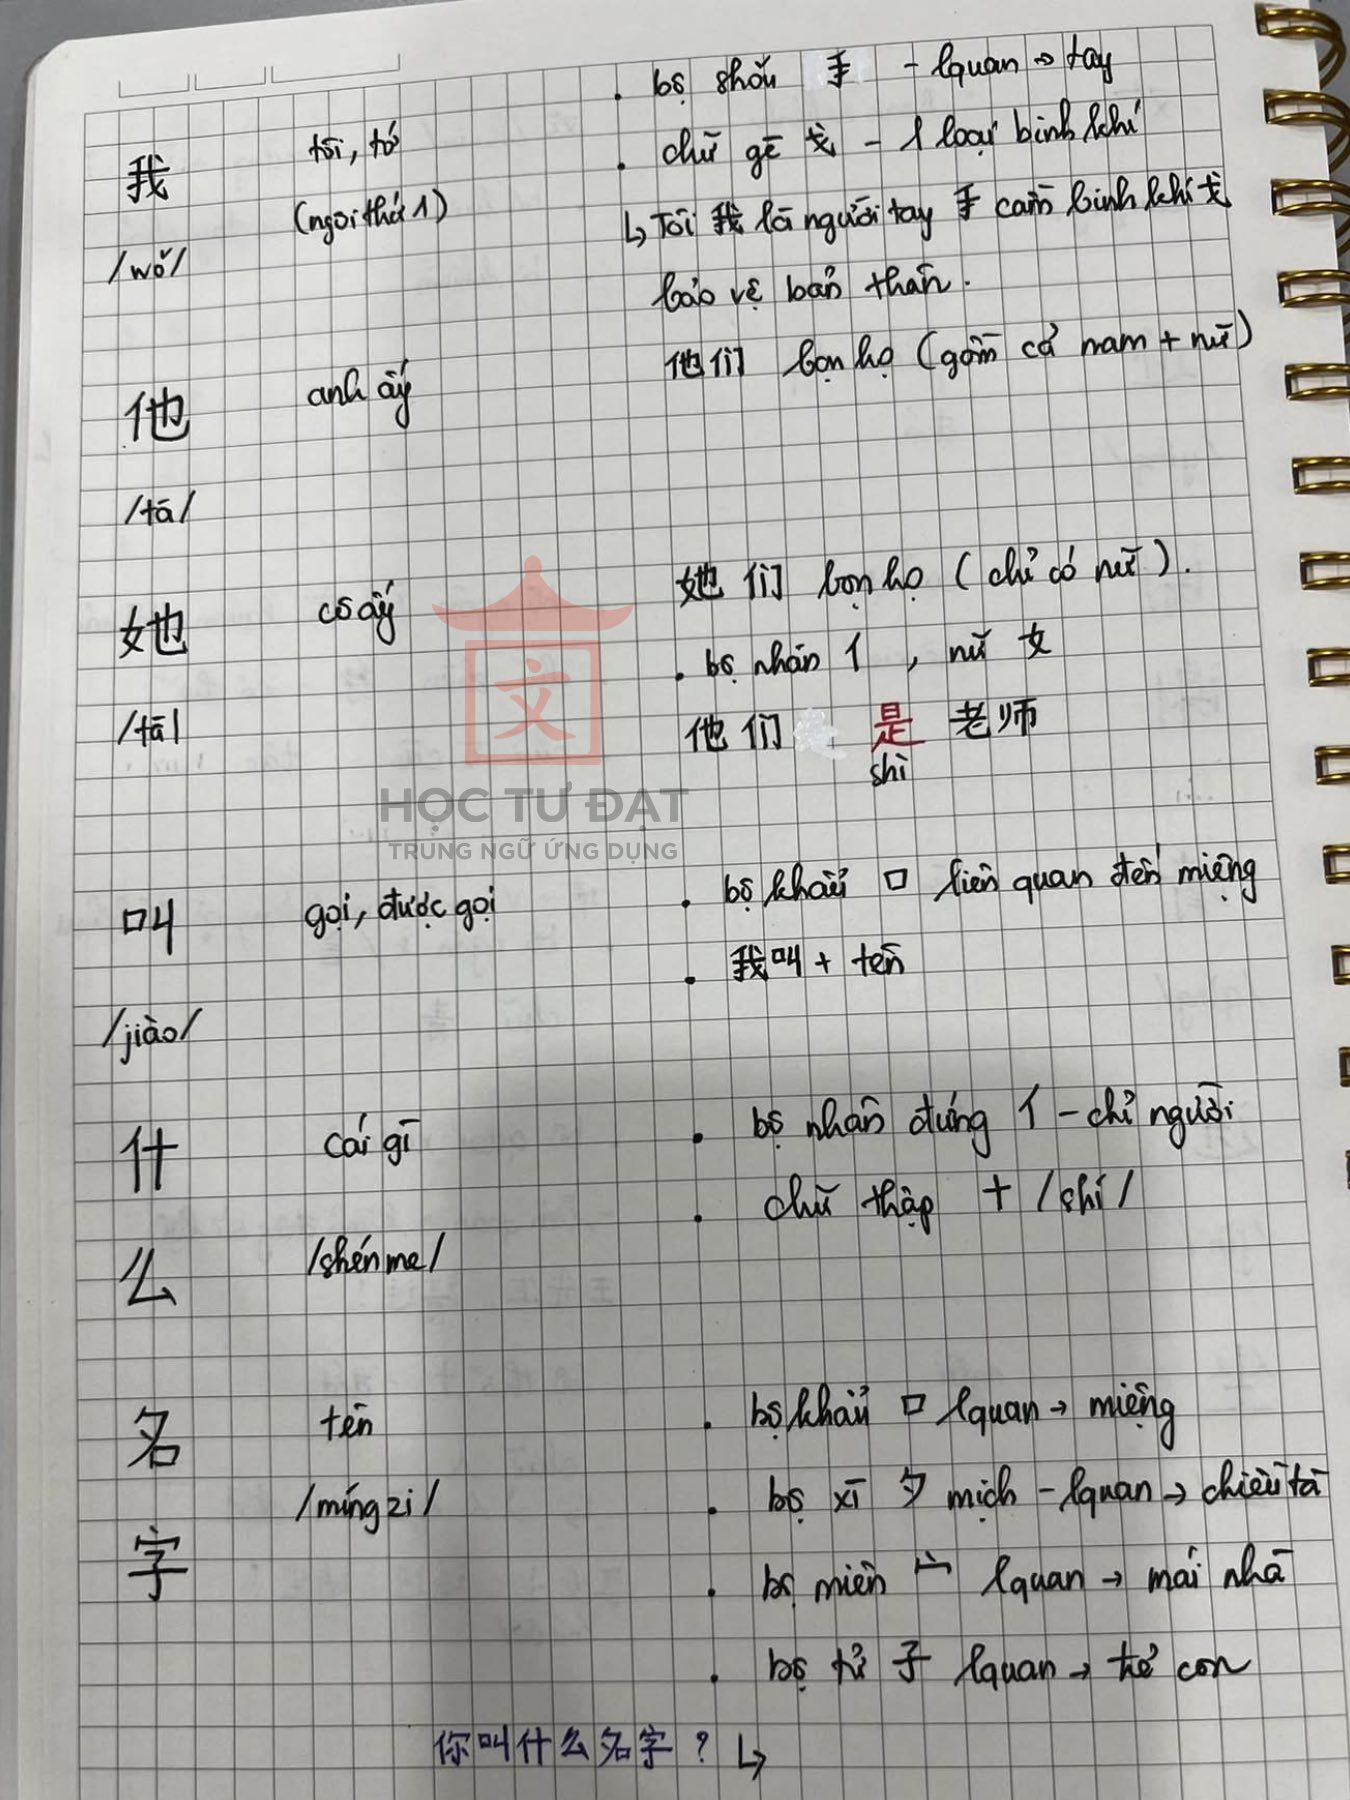 . bộ shǒu 手 - lquan → tay
我 tôi, tớ . chữ gē 戈 - 1 loại binh khí
(ngôi thứ 1) ↳ Tôi 我 là người tay 手 cầm binh khí 戈
/wǒ/ bảo vệ bản thân.
他 anh ấy 他们 bọn họ (gồm cả nam + nữ)
/tā/
她 cô ấy 她们 bọn họ (chỉ có nữ).
. bộ nhân 亻, nữ 女
/tā/ 他们 是 老师
shì
HỌC TƯ ĐẠT
TRUNG NGỮ ỨNG DỤNG
叫 gọi, được gọi . bộ khẩu 口 liên quan đến miệng
. 我叫 + tên
/jiào/
什 cái gì . bộ nhân đứng 亻 - chỉ người
. chữ thập 十 /shí/
么 /shénme/
名 tên . bộ khẩu 口 lquan → miệng
/míng zi/ . bộ xī 夕 mịch - lquan → chiều tà
字 . bộ miên 宀 lquan → mái nhà
. bộ tử 子 lquan → trẻ con
你叫什么名字? ↳